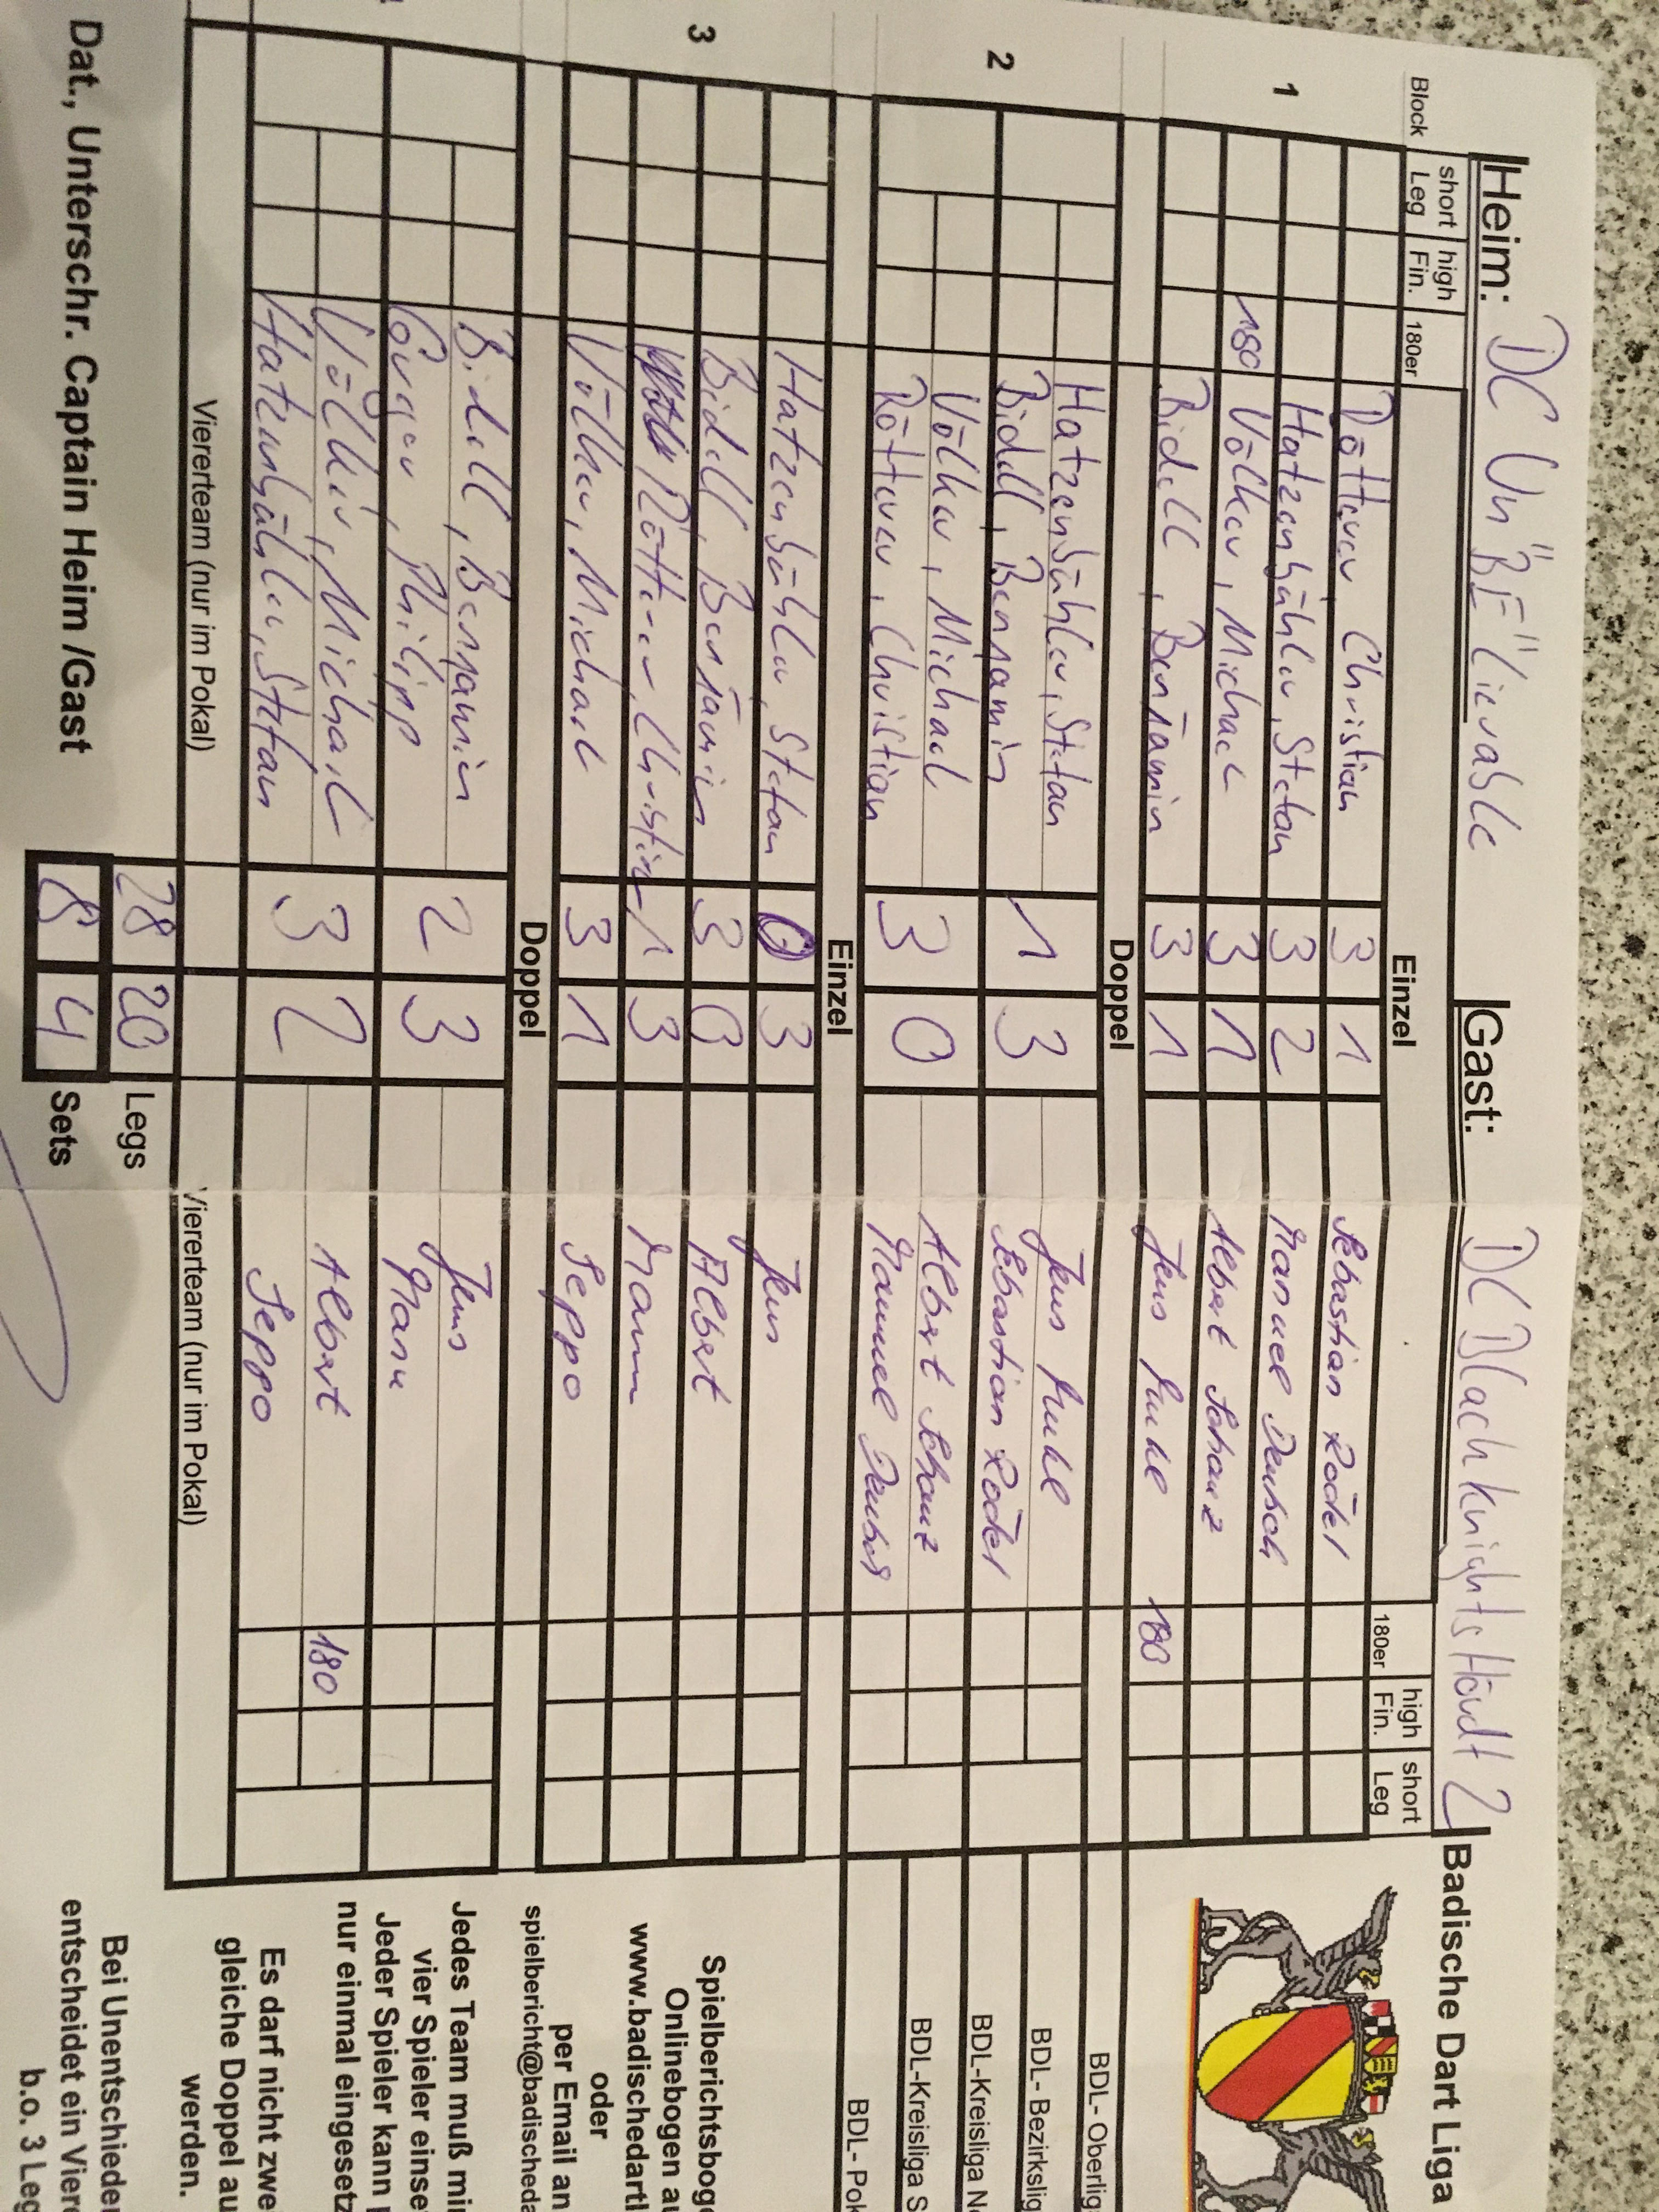 Heim: DC Un"BE"lievable Gast: DC Blackknights Hördt 2 Badische Dart Liga
Block short Leg high Fin. 180er Einzel 180er high Fin. short Leg
1
Rötterer, Christian 3 1 Sebastian Rödel
Hatzenbühler, Stefan 3 2 Manuel
180 Völker, Michael 3 1 Albert Schanz
Bidell, Benjamin 3 1 Jens 180
Doppel
BDL- Oberlig
2
Hatzenbühler, Stefan 1 3 Jens
BDL- Bezirkslig
Bidell, Benjamin Sebastian Rödel
BDL-Kreisliga N
Völker, Michael 3 0 Albert Schanz
BDL-Kreisliga S
Rötterer, Christian Manuel
BDL- Pok
Einzel
3
Hatzenbühler, Stefan 0 3 Jens
Bidell, Benjamin 3 0 Albert
Rötterer, Christian 1 3 Manu
Völker, Michael 3 1 Seppo
Doppel
Bidell, Benjamin 2 3 Jens
Philipp Manu
Völker, Michael 3 2 Albert 180
Hatzenbühler, Stefan Seppo
Viererteam (nur im Pokal) Viererteam (nur im Pokal)
28 20 Legs
8 4 Sets
Dat., Unterschr. Captain Heim /Gast
Spielberichtsboge
Onlinebogen au
www.badischedartl
oder
per Email an
spielbericht@badischeda
Jedes Team muß mi
vier Spieler einse
Jeder Spieler kann
nur einmal eingesetz
Es darf nicht zwe
gleiche Doppel au
werden.
Bei Unentschieden
entscheidet ein Viere
b.o. 3 Leg